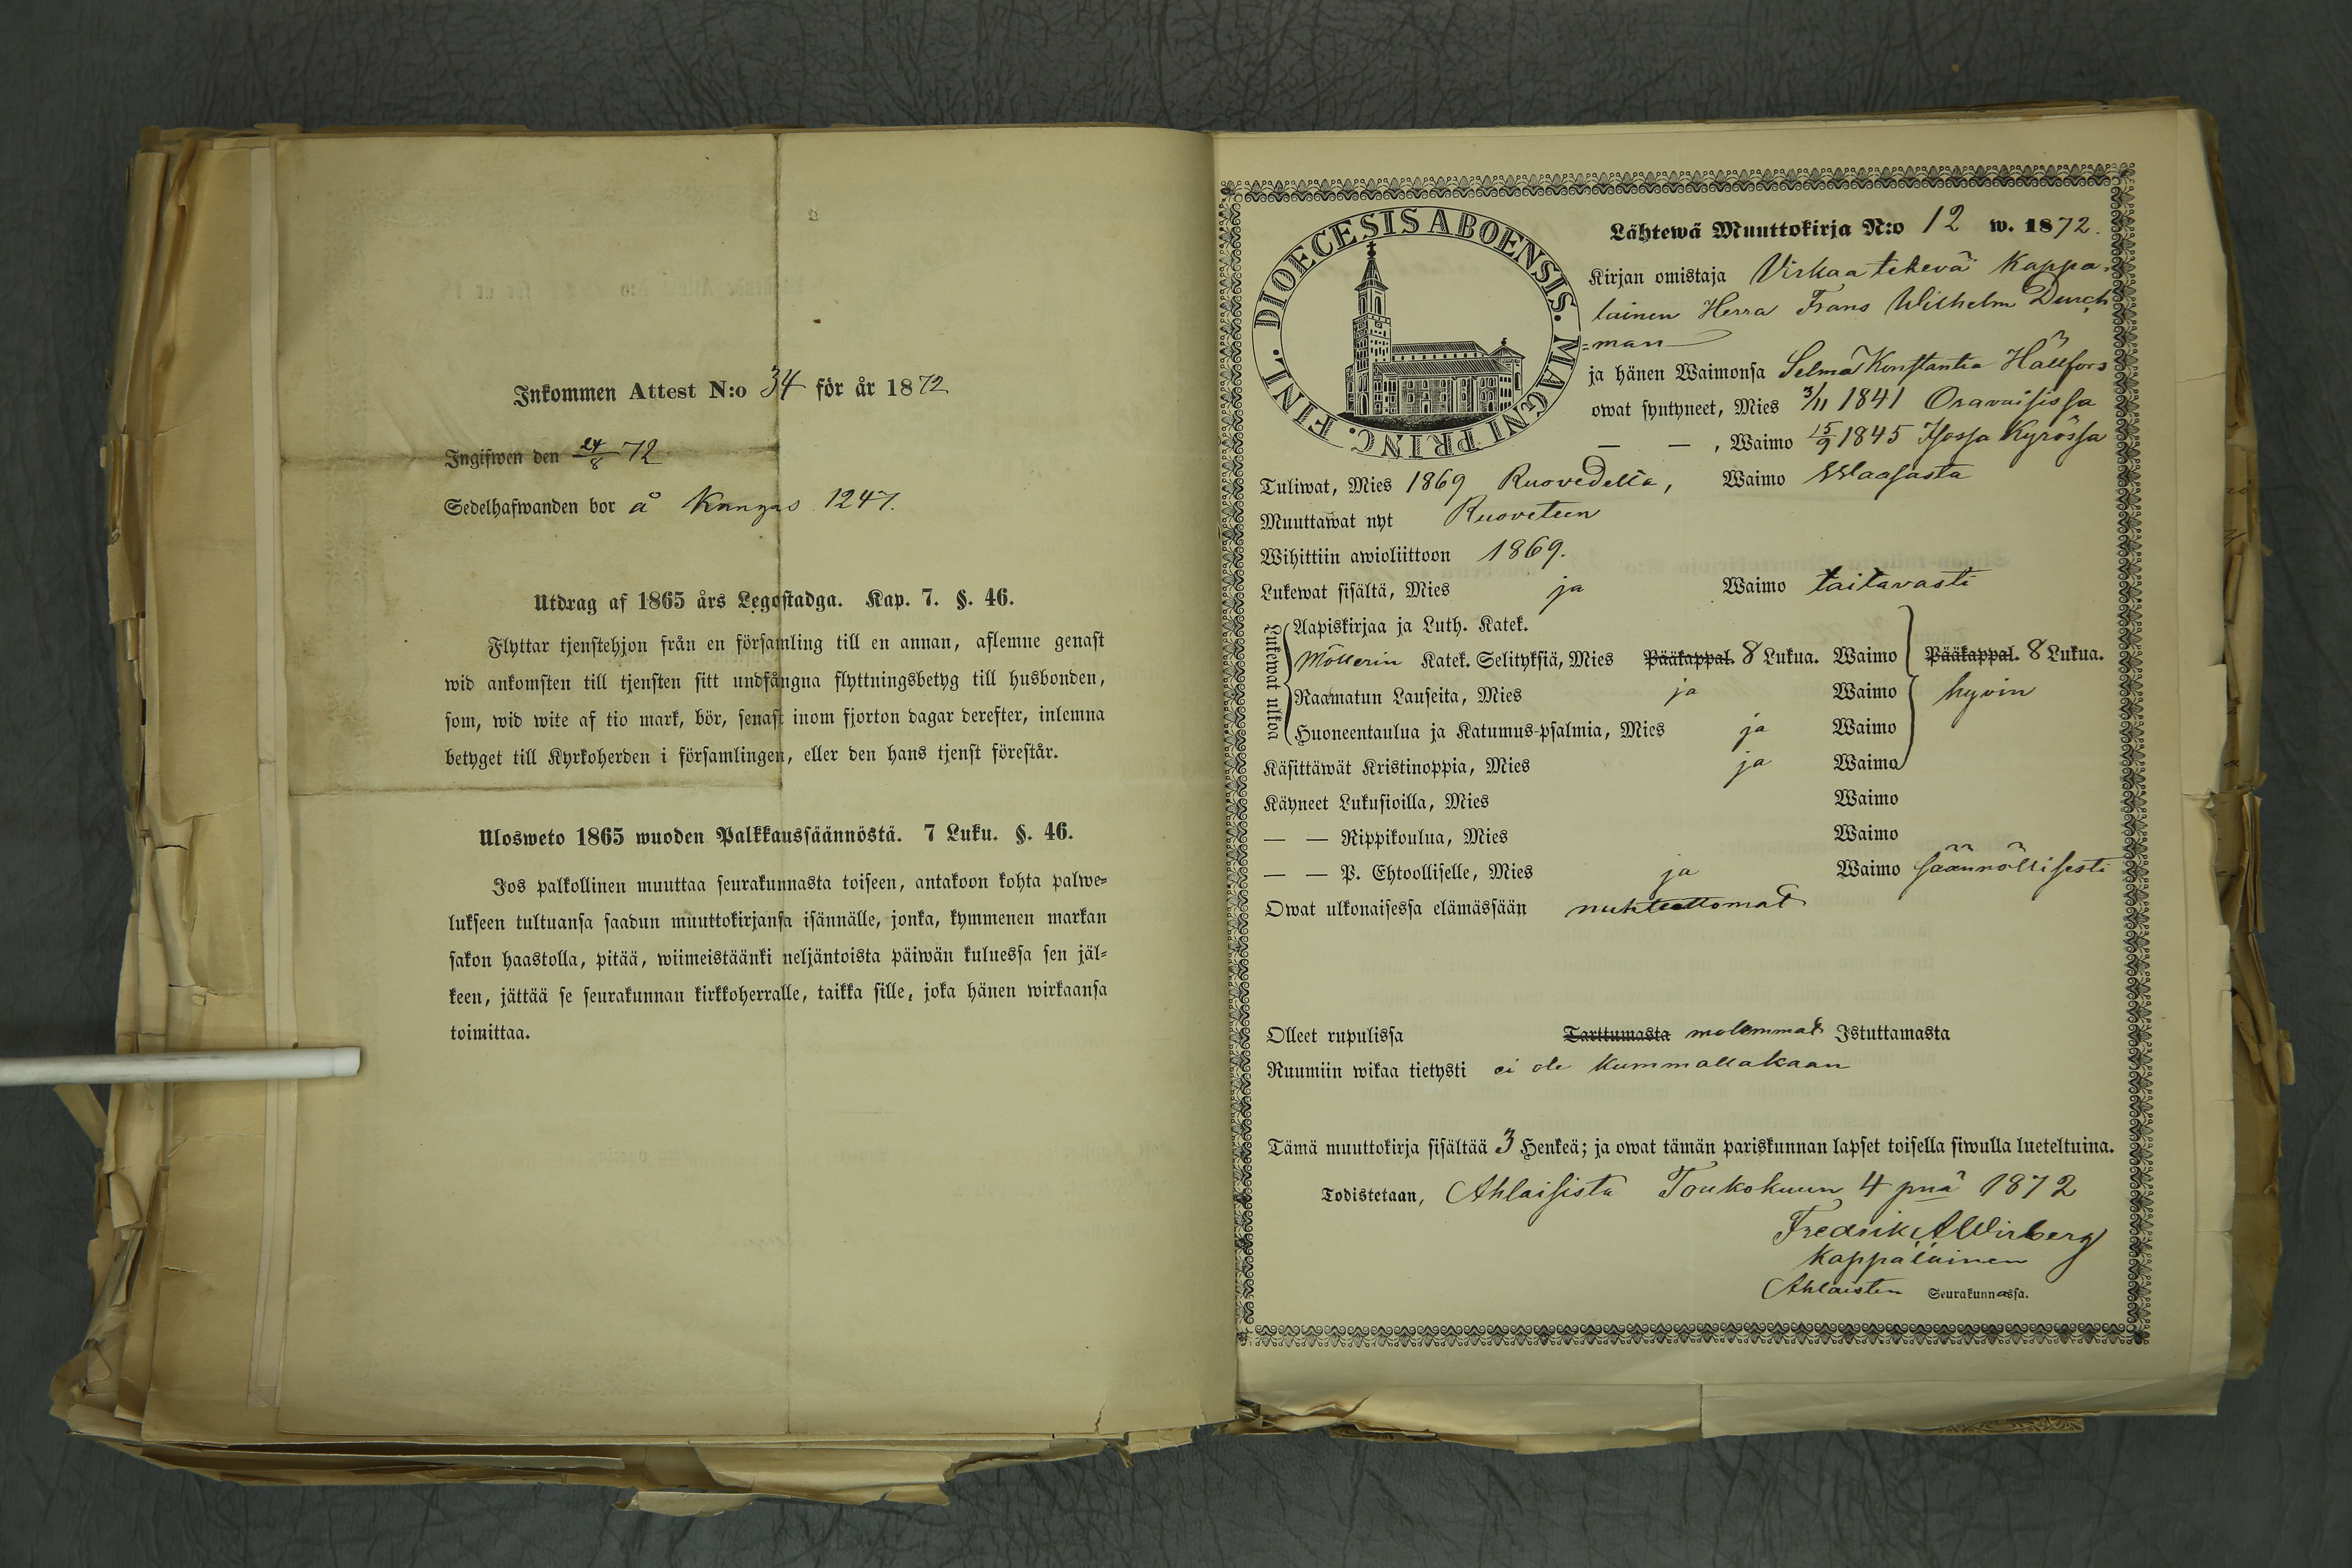 Inkommen Attest N:o 34 för år 1872
Ingifwen den 24/8 72
Sedelhafwanden bor å Kangas 1247.
Utdrag af 1865 års Legostadga. Kap. 7. §. 46.
Flyttar tjenstehjon från en församling till en annan, aflemne genast
wid ankomsten till tjensten sitt undfångna flyttningsbetyg till husbonden,
som, wid wite af tio mark, bör, senast inom fjorton dagar derefter, inlemna
betyget till Kyrkoherden i församlingen, eller den hans tjenst förestår.
Ulosweto 1865 wuoden Palkkaussäännöstä. 7 Luku. §. 46.
Jos palkollinen muuttaa seurakunnasta toiseen, antakoon kohta palwe=
lukseen tultuansa saadun muuttokirjansa isännälle, jonka, kymmenen markan
sakon haastolla, pitää, wiimeistäänki neljäntoista päiwän kuluessa sen jäl=
keen, jättää se seurakunnan kirkkoherralle, taikka sille, joka hänen wirkaansa
toimittaa.
DIOECESIS ABOENSIS. MAGNI PRINC. FINL.
Lähtewä Muuttokirja N:o 12 w. 1872.
Kirjan omistaja Virkaa tekevä Kappa=
lainen Herra Frans Wilhelm Durch
=man
ja hänen Waimonsa Selma Konstantia Hällfors
owat syntyneet, Mies 3/11 1841 Oravaisissa
— — , Waimo 15/9 1845 Isossa Kyrössä
Tuliwat, Mies 1869 Ruovedeltä, Waimo Waasasta
Muuttawat nyt Ruoveteen
Wihittiin awioliittoon 1869.
Lukewat sisältä, Mies ja Waimo taitavasti
Lukewat ulkoa
Aapiskirjaa ja Luth. Katek.
Möllerin Katek. Selityksiä, Mies Pääkappal. 8 Lukua. Waimo Pääkappal. 8 Lukua.
Raamatun Lauseita, Mies ja Waimo hyvin
Huoneentaulua ja Katumus-psalmia, Mies ja Waimo
Käsittäwät Kristinoppia, Mies ja Waimo
Käyneet Lukusioilla, Mies Waimo
— — Rippikoulua, Mies Waimo
— — P. Ehtoolliselle, Mies ja Waimo säännöllisesti
Owat ulkonaisessa elämässään nuhteettomat
Olleet rupulissa Tarttumasta molemmat Istuttamasta
Ruumiin wikaa tietysti ei ole kummallakaan
Tämä muuttokirja sisältää 3 Henkeä; ja owat tämän pariskunnan lapset toisella siwulla lueteltuina.
Todistetaan, Ahlaisista Toukokuun 4 pnä 1872
Fredrik A Wirberg
Kappalainen
Ahlaisten Seurakunnassa.